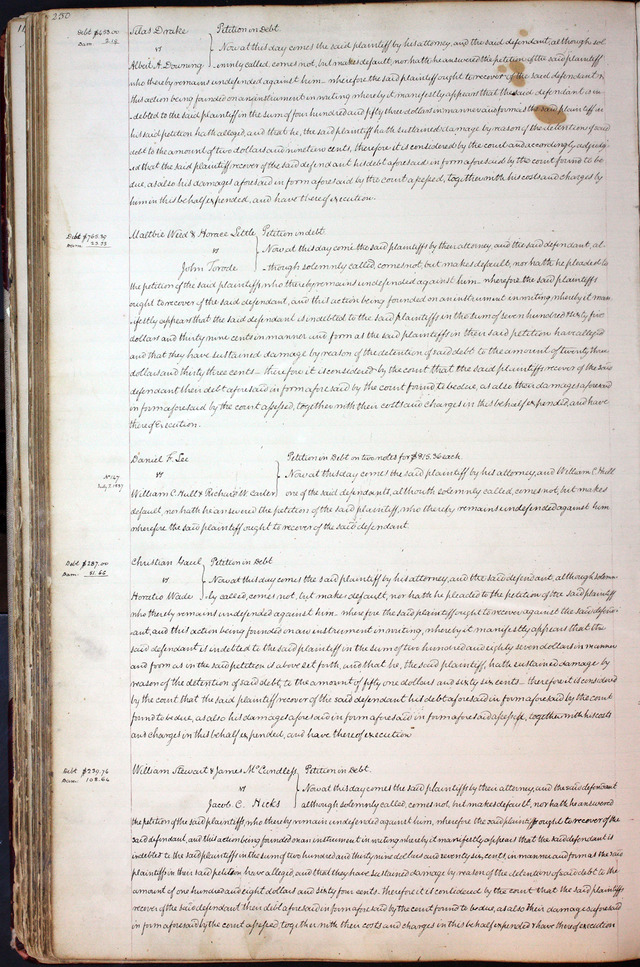 230
Debt $453.00 Silas Drake Petition in Debt
Dam 2.19 vs Now at this day comes the said plaintiff by his attorney, and the said defendant, although sol
Albert A. Downing emnly called, comes not, but makes default, nor hath he answered the petition of the said plaintiff
who thereby remains undefended against him. wherefore the said plaintiff ought to recover of the said defendant &
this action being founded on an instrument in writing whereby it manifestly appears that the said defendant is in-
debted to the said plaintiff in the sum of four hundred and fifty three dollars in manner and form as the said plaintiff in
his said petition hath alleged, and that he, the said plaintiff hath sustained damage by reason of the detention of said
debt to the amount of two dollars and nineteen cents, therefore it is considered by the court and accordingly adjudg
ed that the said plaintiff recover of the said defendant his debt aforesaid in form aforesaid by the court found to be
due, as also his damages aforesaid in form aforesaid by the court assessed, together with his costs and charges by
him in this behalf expended, and have thereof execution.
Debt $735.39 Maltbie Weed & Horace Little Petition in debt
Dam 23.33 vs Now at this day come the said plaintiffs by their attorney and the said defendant, al-
John Torode -though solemnly called, comes not, but makes default, nor hath he pleaded to
the petition of the said plaintiffs, who thereby remains undefended against him. wherefore the said plaintiffs
ought to recover of the said defendant, and this action being founded on an instrument in writing whereby it man
ifestly appears that the said defendant is indebted to the said plaintiffs in the sum of seven hundred thirty five
dollars and thirty nine cents in manner and form as the said plaintiffs in their said petition have alleged
and that they have sustained damage by reason of the detention of said debt to the amount of twenty three
dollars and thirty three cents – therefore it is considered by the court that the said plaintiffs recover of the said
defendant their debt aforesaid in form aforesaid by the court found to be due, as also their damages aforesaid
in form aforesaid by the court assessed, together with their costs and charges in this behalf expended, and have
thereof execution.
Daniel F. Lee Petition in Debt on two notes for $815.36 each
No 127 vs Now at this day comes the said plaintiff by his attorney, and William C. Hull
July T. 1837 William C. Hull & Richard W. Carter one of the said defendants, although solemnly called, comes not, but makes
default, nor hath he answered the petition of the said plaintiff, who thereby remains undefended against him
wherefore the said plaintiff ought to recover of the said defendant.
Debt $287.00 Christian Gaul Petition in Debt
Dam. 51.66 vs Now at this day comes the said plaintiff by his attorney, and the said defendant, although solemn
Horatio Wade ly called, comes not, but makes default, nor hath he pleaded to the petition of the said plaintiff
who thereby remains undefended against him. wherefore the said plaintiff ought to recover against the said defend-
ant, and this action being founded on an instrument in writing, whereby it manifestly appears that the
said defendant is indebted to the said plaintiff in the sum of two hundred and eighty seven dollars in manner
and form as in the said petition is above set forth, and that he, the said plaintiff, hath sustained damage by
reason of the detention of said debt, to the amount of fifty one dollars and sixty six cents – therefore it is considered
by the court that the said plaintiff recover of the said defendant his debt aforesaid in form aforesaid by the court
found to be due, as also his damages aforesaid in form aforesaid in form aforesaid assessed, together with his costs
and charges in this behalf expended, and have thereof execution
Debt $239.76 William Stewart & James McCundless Petition in Debt.
Dam. 108.64 vs Now at this day comes the said plaintiffs by their attorney and the said defendant
Jacob C. Hicks although solemnly called, comes not, but makes default, nor hath he answered
the petition of the said plaintiffs, who thereby remain undefended against him, wherefore the said plaintiffs ought to recover of the
said defendant, and this action being founded on an instrument in writing whereby it manifestly appears that the said defendant is
indebted to the said plaintiffs in the sum of two hundred and thirty nine dollars and seventy six cents, in manner and form as the said
plaintiffs in their said petition have alleged, and that they have sustained damage by reason of the detention of said debt to the
amount of one hundred and eight dollars and sixty four cents. therefore it is considered by the court that the said plaintiffs
recover of the said defendant their debt aforesaid in form aforesaid by the court found to be due, as also their damages aforesaid
in form aforesaid by the court assessed, together with their costs and charges in this behalf expended & have thereof execution